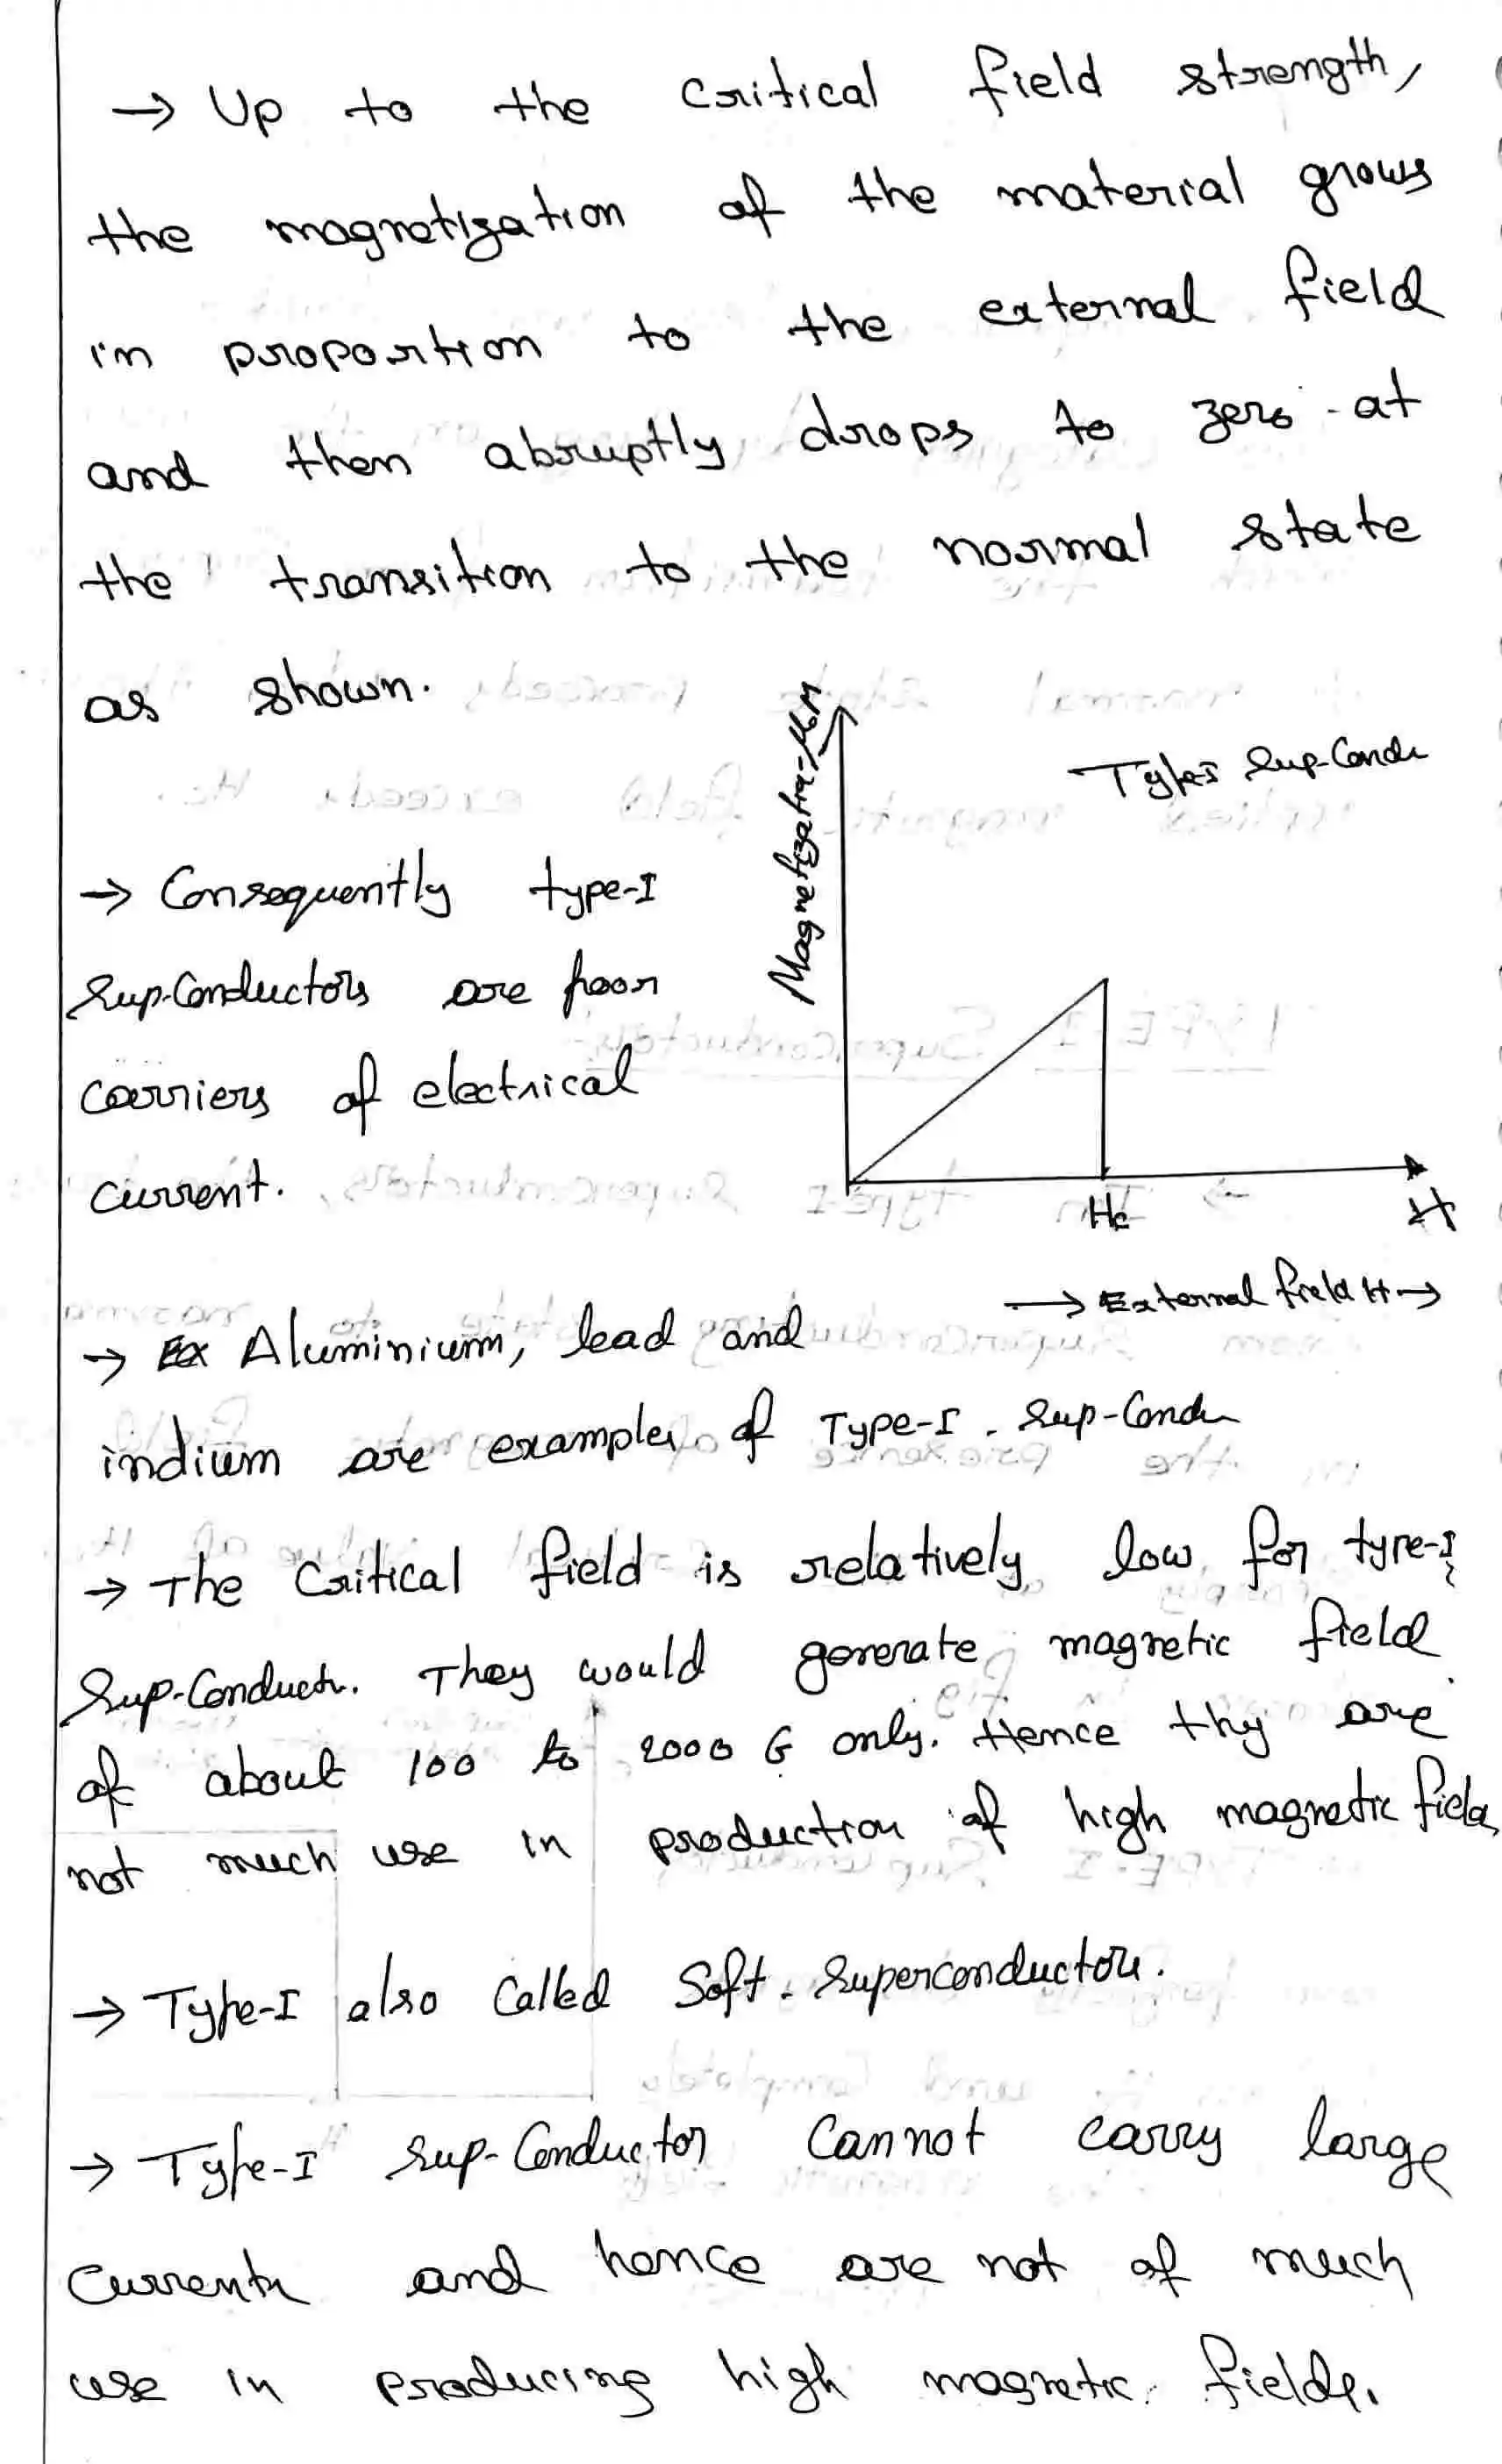 → Up to the critical field strength,
the magnetization of the material grows
in proportion to the external field
and then abruptly drops to zero at
the transition to the normal state
as shown.
Magnetization, -μ₀M
Type-I Sup-Condr
→ Consequently type-I
Sup-Conductors are poor
carriers of electrical
current.
Hc
H
→ External field H →
→ Ex Aluminium, lead and
indium are examples of Type-I. Sup-Condr
→ The Critical field is relatively low for type-I
Sup-Conductr. They would generate magnetic field
of about 100 to 2000 G only. Hence they are
not much use in production of high magnetic fields
→ Type-I also Called Soft. Superconductors.
→ Type-I Sup-Conductor Cannot carry large
Currents and hence are not of much
use in producing high magnetic fields.